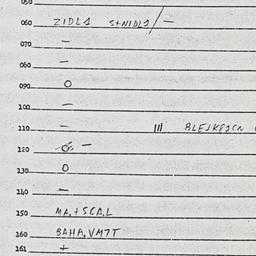 050
060 ZIDL1 S+NIDL1/—
070 —
080 —
090 O
100 —
110 — III BLEJKP2CN
120 —
130 O
140 —
150 MA,+SCA,L
160 BAHA,VM7T
161 +